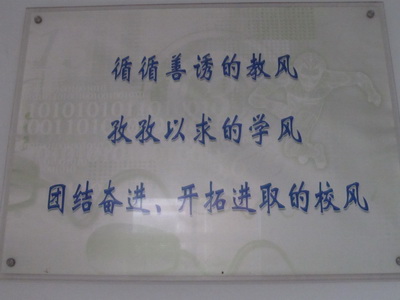 循循善诱的教风
孜孜以求的学风
团结奋进、开拓进取的校风